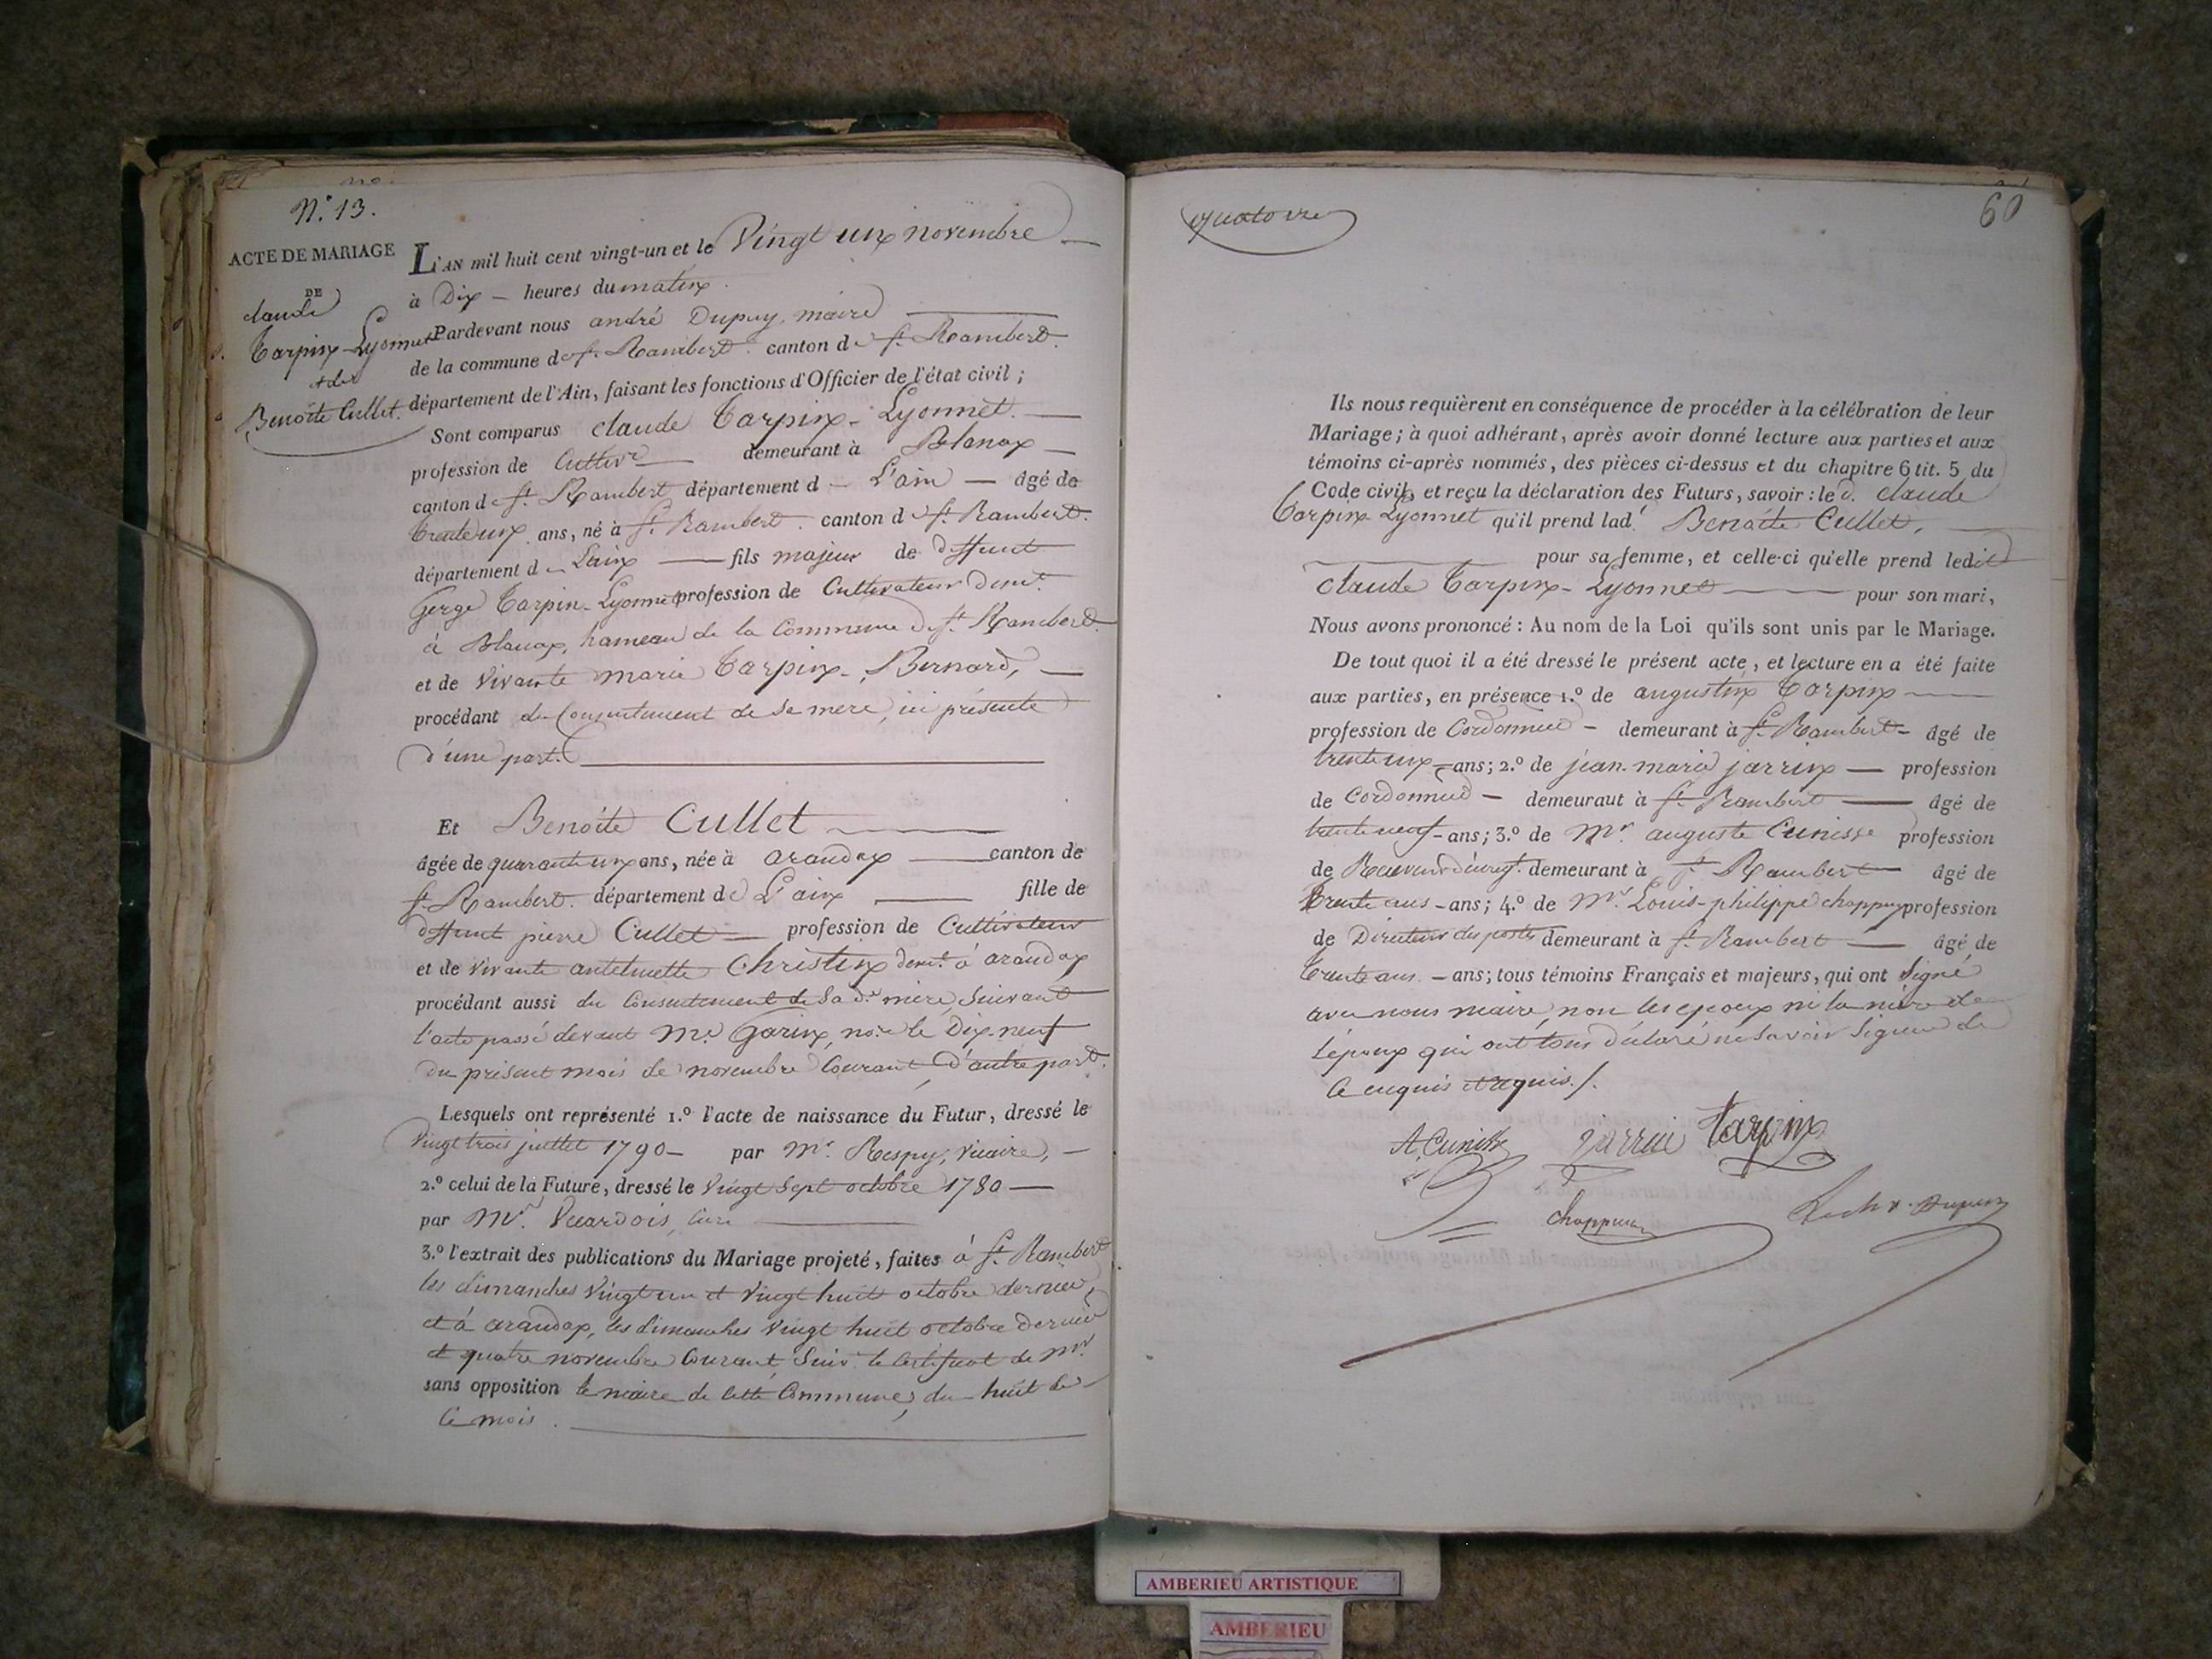 N.° 13.
ACTE DE MARIAGE
DE
claude
Tarpin-Lyonnet
et de
Benoîte Cullet.
L'AN mil huit cent vingt-un et le Vingt un novembre
à Dix heures du matin.
Pardevant nous andré Dupuy, maire
de la commune de St. Rambert. canton de St. Rambert.
département de l'Ain, faisant les fonctions d'Officier de l'état civil ;
Sont comparus claude Tarpin-Lyonnet.
profession de Cultivr demeurant à Blanax
canton de St. Rambert département d L'ain âgé de
trente un ans, né à St. Rambert. canton de St. Rambert.
département d Lain fils majeur de deffunt
Gorge Tarpin-Lyonnet profession de Cultivateur demt.
à Blanax, hameau de la Commune de St. Rambert.
et de vivante marie Tarpin-Bernard,
procédant du Consentement de sa mere, ici présente
d'une part.
Et Benoîte Cullet
âgée de quarante un ans, née à arandax canton de
St. Rambert. département de L'ain fille de
deffunt pierre Cullet profession de Cultivateur
et de vivante antelmette Christin demt. à arandax
procédant aussi du Consentement de sa de. mère, suivant
l'acte passé devant Me. Garin, nore. le Dix-neuf
du présent mois de novembre Courant, d'autre part.
Lesquels ont représenté 1.° l'acte de naissance du Futur, dressé le
vingt trois juillet 1790 par Mr. Respy, vicaire,
2.° celui de la Future, dressé le vingt sept octobre 1780
par Mr. Vuardois, Curé
3.° l'extrait des publications du Mariage projeté, faites à St. Rambert
les dimanches vingt un et vingt huit octobre dernier,
et à arandax, les dimanches vingt huit octobre dernier
et quatre novembre Courant, suivt. le certificat de Mr.
sans opposition le maire de cette Commune, du huit de
Ce mois.
quatorze
60
Ils nous requièrent en conséquence de procéder à la célébration de leur
Mariage ; à quoi adhérant, après avoir donné lecture aux parties et aux
témoins ci-après nommés, des pièces ci-dessus et du chapitre 6 tit. 5 du
Code civil, et reçu la déclaration des Futurs, savoir : le d. claude
Tarpin-Lyonnet qu'il prend lad.e Benoîte Cullet,
pour sa femme, et celle-ci qu'elle prend ledit
claude Tarpin-Lyonnet pour son mari,
Nous avons prononcé : Au nom de la Loi qu'ils sont unis par le Mariage.
De tout quoi il a été dressé le présent acte, et lecture en a été faite
aux parties, en présence 1.° de augustin Tarpin
profession de Cordonnier demeurant à St. Rambert âgé de
trente un ans ; 2.° de jean-marie jarrin profession
de Cordonnier demeuraut à St. Rambert âgé de
trente neuf ans ; 3.° de Mr. auguste Cunisse profession
de Receveur d'enregt. demeurant à St. Rambert âgé de
trente ans - ans ; 4.° de Mr. Louis-philippe chappuy profession
de Directeur des postes demeurant à St. Rambert âgé de
trente ans - ans ; tous témoins Français et majeurs, qui ont Signé
avec nous maire, non les epoux ni la mère de
L'époux qui ont tous déclaré ne savoir Signer de
Ce enquis et requis ./.
A. Cunisse jarrin Tarpin
chappuy Dupuy
AMBERIEU ARTISTIQUE
AMBERIEU